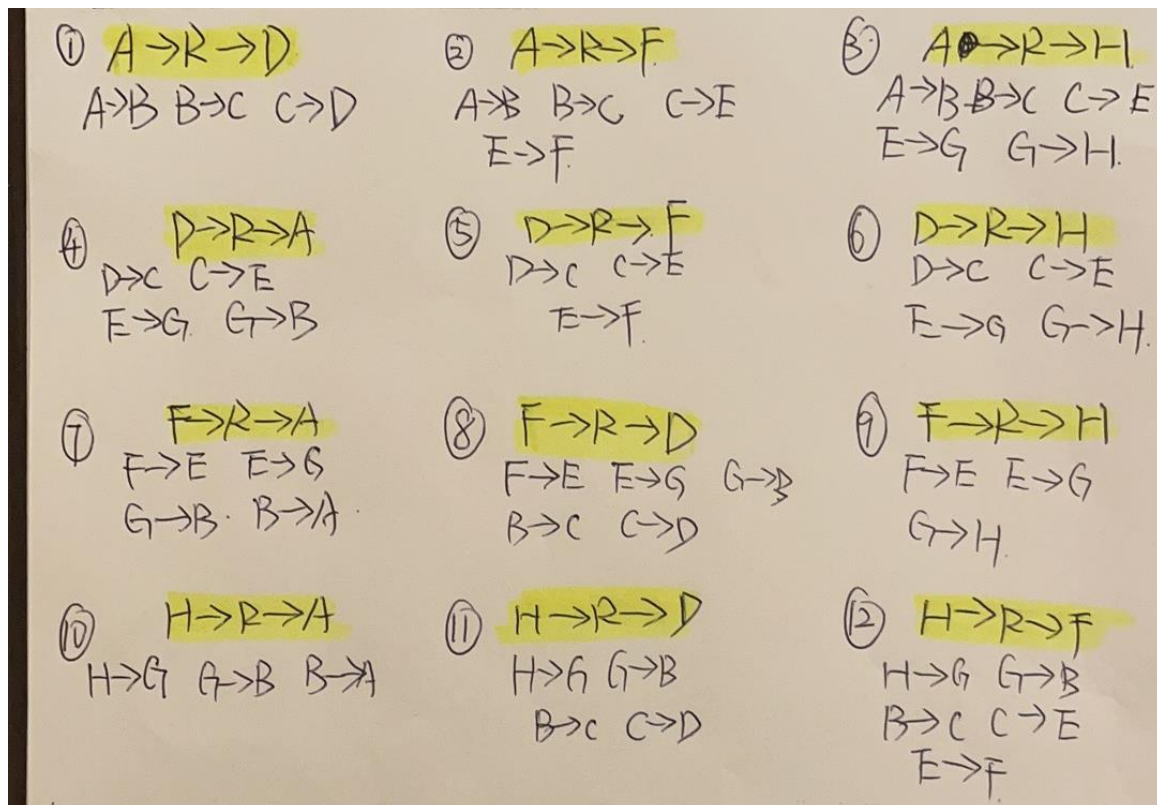 ① A→R→D
A→B B→C C→D
② A→R→F.
A→B B→C C→E
E→F.
③ A→R→H.
A→B B→C C→E
E→G G→H.
④ D→R→A
D→C C→E
E→G G→B
⑤ D→R→F
D→C C→E
E→F.
⑥ D→R→H
D→C C→E
E→G G→H.
⑦ F→R→A
F→E E→G
G→B. B→A.
⑧ F→R→D
F→E E→G G→B
B→C C→D
⑨ F→R→H
F→E E→G
G→H.
⑩ H→R→A
H→G G→B B→A
⑪ H→R→D
H→G G→B
B→C C→D
⑫ H→R→F
H→G G→B
B→C C→E
E→F